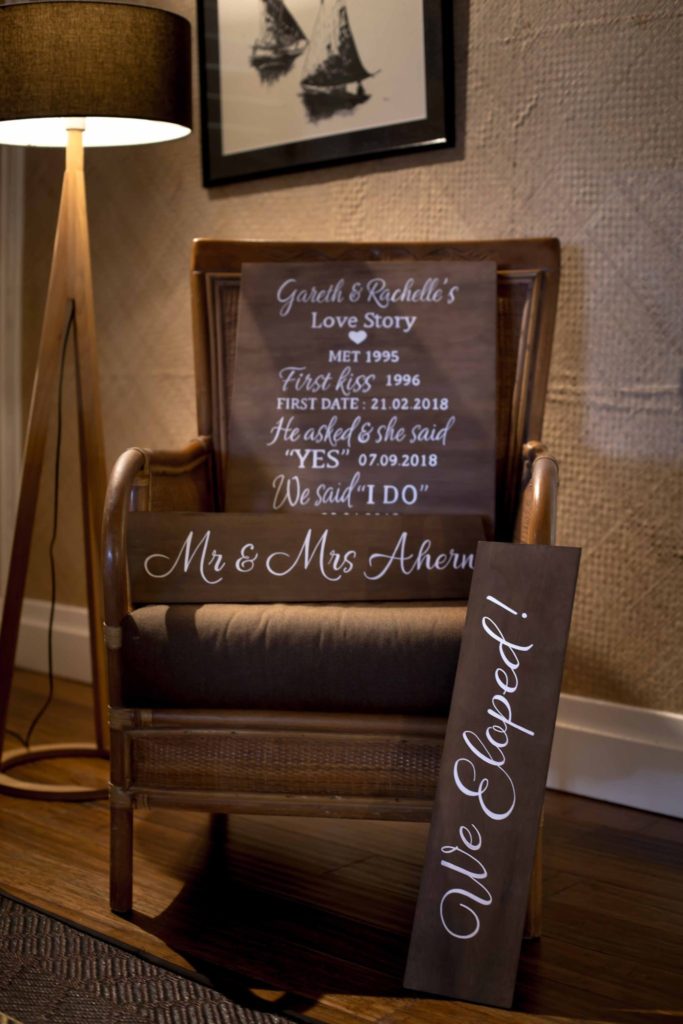 Gareth & Rachelle's
Love Story
MET 1995
First kiss 1996
FIRST DATE : 21.02.2018
He asked & she said
"YES" 07.09.2018
We said "I DO"
Mr & Mrs Ahern
We Eloped!